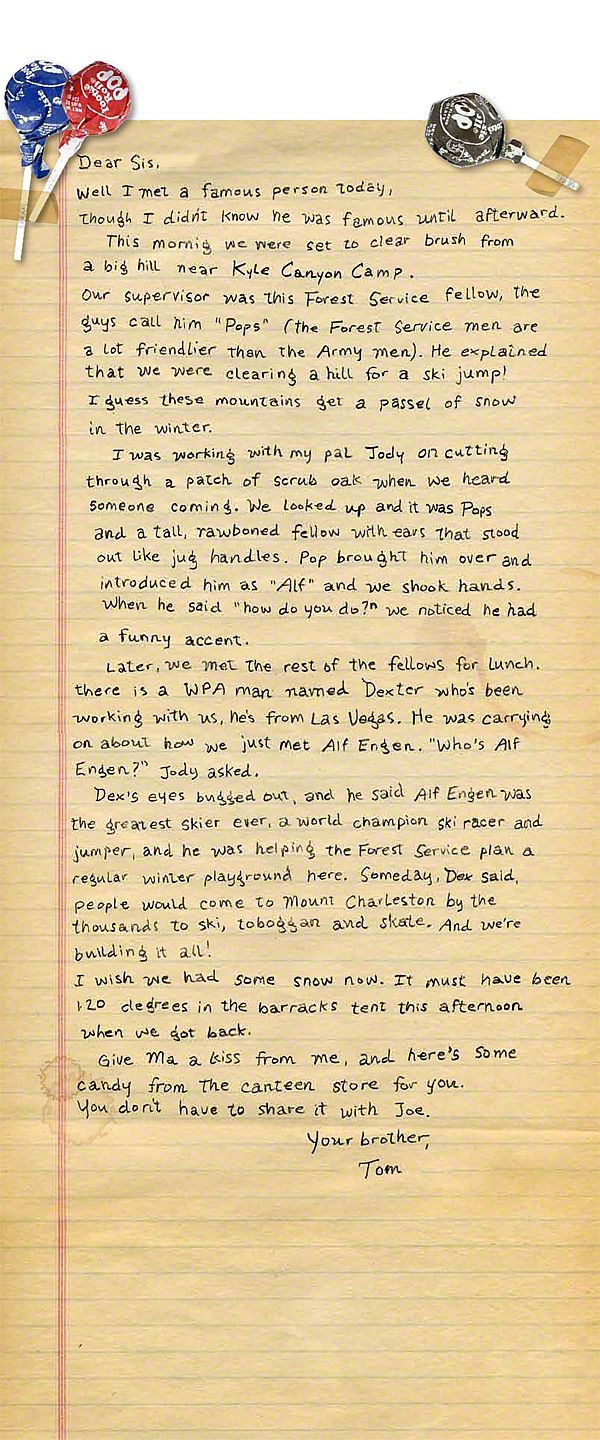 Tootsie Roll POP
POP
Dear Sis,
Well I met a famous person today,
though I didn't know he was famous until afterward.
This mornig we were set to clear brush from
a big hill near Kyle Canyon Camp.
Our supervisor was this Forest Service fellow, the
guys call him "Pops" (the Forest Service men are
a lot friendlier than the Army men). He explained
that we were clearing a hill for a ski jump!
I guess these mountains get a passel of snow
in the winter.
I was working with my pal Jody on cutting
through a patch of scrub oak when we heard
someone coming. We looked up and it was Pops
and a tall, rawboned fellow with ears that stood
out like jug handles. Pop brought him over and
introduced him as "Alf" and we shook hands.
When he said "how do you do?" we noticed he had
a funny accent.
Later, we met the rest of the fellows for lunch.
there is a WPA man named Dexter who's been
working with us, he's from Las Vegas. He was carrying
on about how we just met Alf Engen. "Who's Alf
Engen?" Jody asked.
Dex's eyes bugged out, and he said Alf Engen was
the greatest skier ever, a world champion ski racer and
jumper, and he was helping the Forest Service plan a
regular winter playground here. Someday, Dex said,
people would come to Mount Charleston by the
thousands to ski, toboggan and skate. And we're
building it all!
I wish we had some snow now. It must have been
120 degrees in the barracks tent this afternoon
when we got back.
Give Ma a kiss from me, and here's some
candy from the canteen store for you.
You don't have to share it with Joe.
Your brother,
Tom